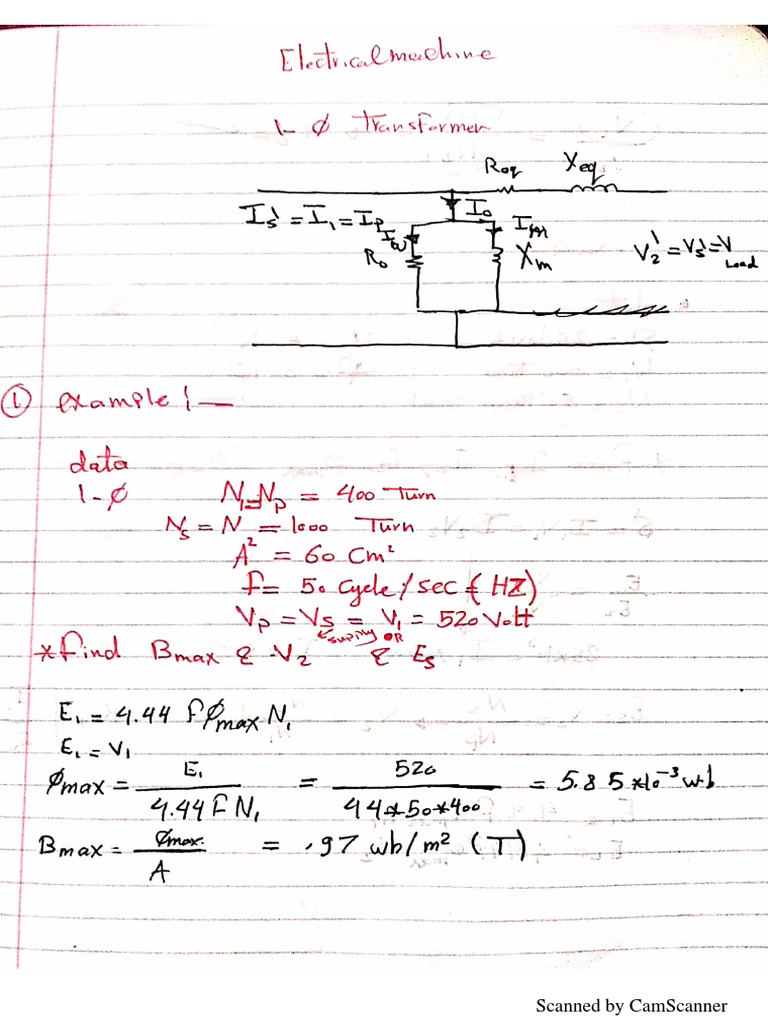 Electrical machine
1-Ø Transformer
Req Xeq
I's = I1 = Ip
I0
Iw
Im
R0
Xm
V2' = Vs' = V Load
① example :—
data
1-Ø N1=Np = 400 Turn
Ns = N = 1000 Turn
A² = 60 Cm²
f = 50 Cycle/sec = (HZ)
Vp = Vs = V1 = 520 Volt
supply OR
*find Bmax & V2 & Es
E1 = 4.44 f Ømax N1
E1 = V1
Ømax = E1 / 4.44 F N1 = 520 / 44*50*400 = 5.85*10⁻³ wb
Bmax = Ømax / A = .97 wb/m² (T)
Scanned by CamScanner